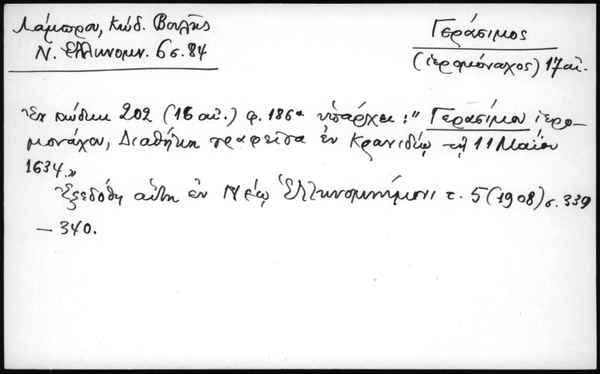 Λάμπρου, Κώδ. Βουλῆς
Ν. Ἑλληνομν. 6 σ. 84
Γεράσιμος
(ἱερομόναχος) 17 αἰ.
Ἐν κώδικι 202 (16 αἰ.) φ. 186α ὑπάρχει: "Γερασίμου ἱερο-
μονάχου, Διαθήκη γραφεῖσα ἐν Κρανιδίῳ τῇ 11 Μαΐου
1634."
Ἐξεδόθη αὕτη ἐν Νέῳ Ἑλληνομνήμονι τ. 5 (1908) σ. 339
– 340.